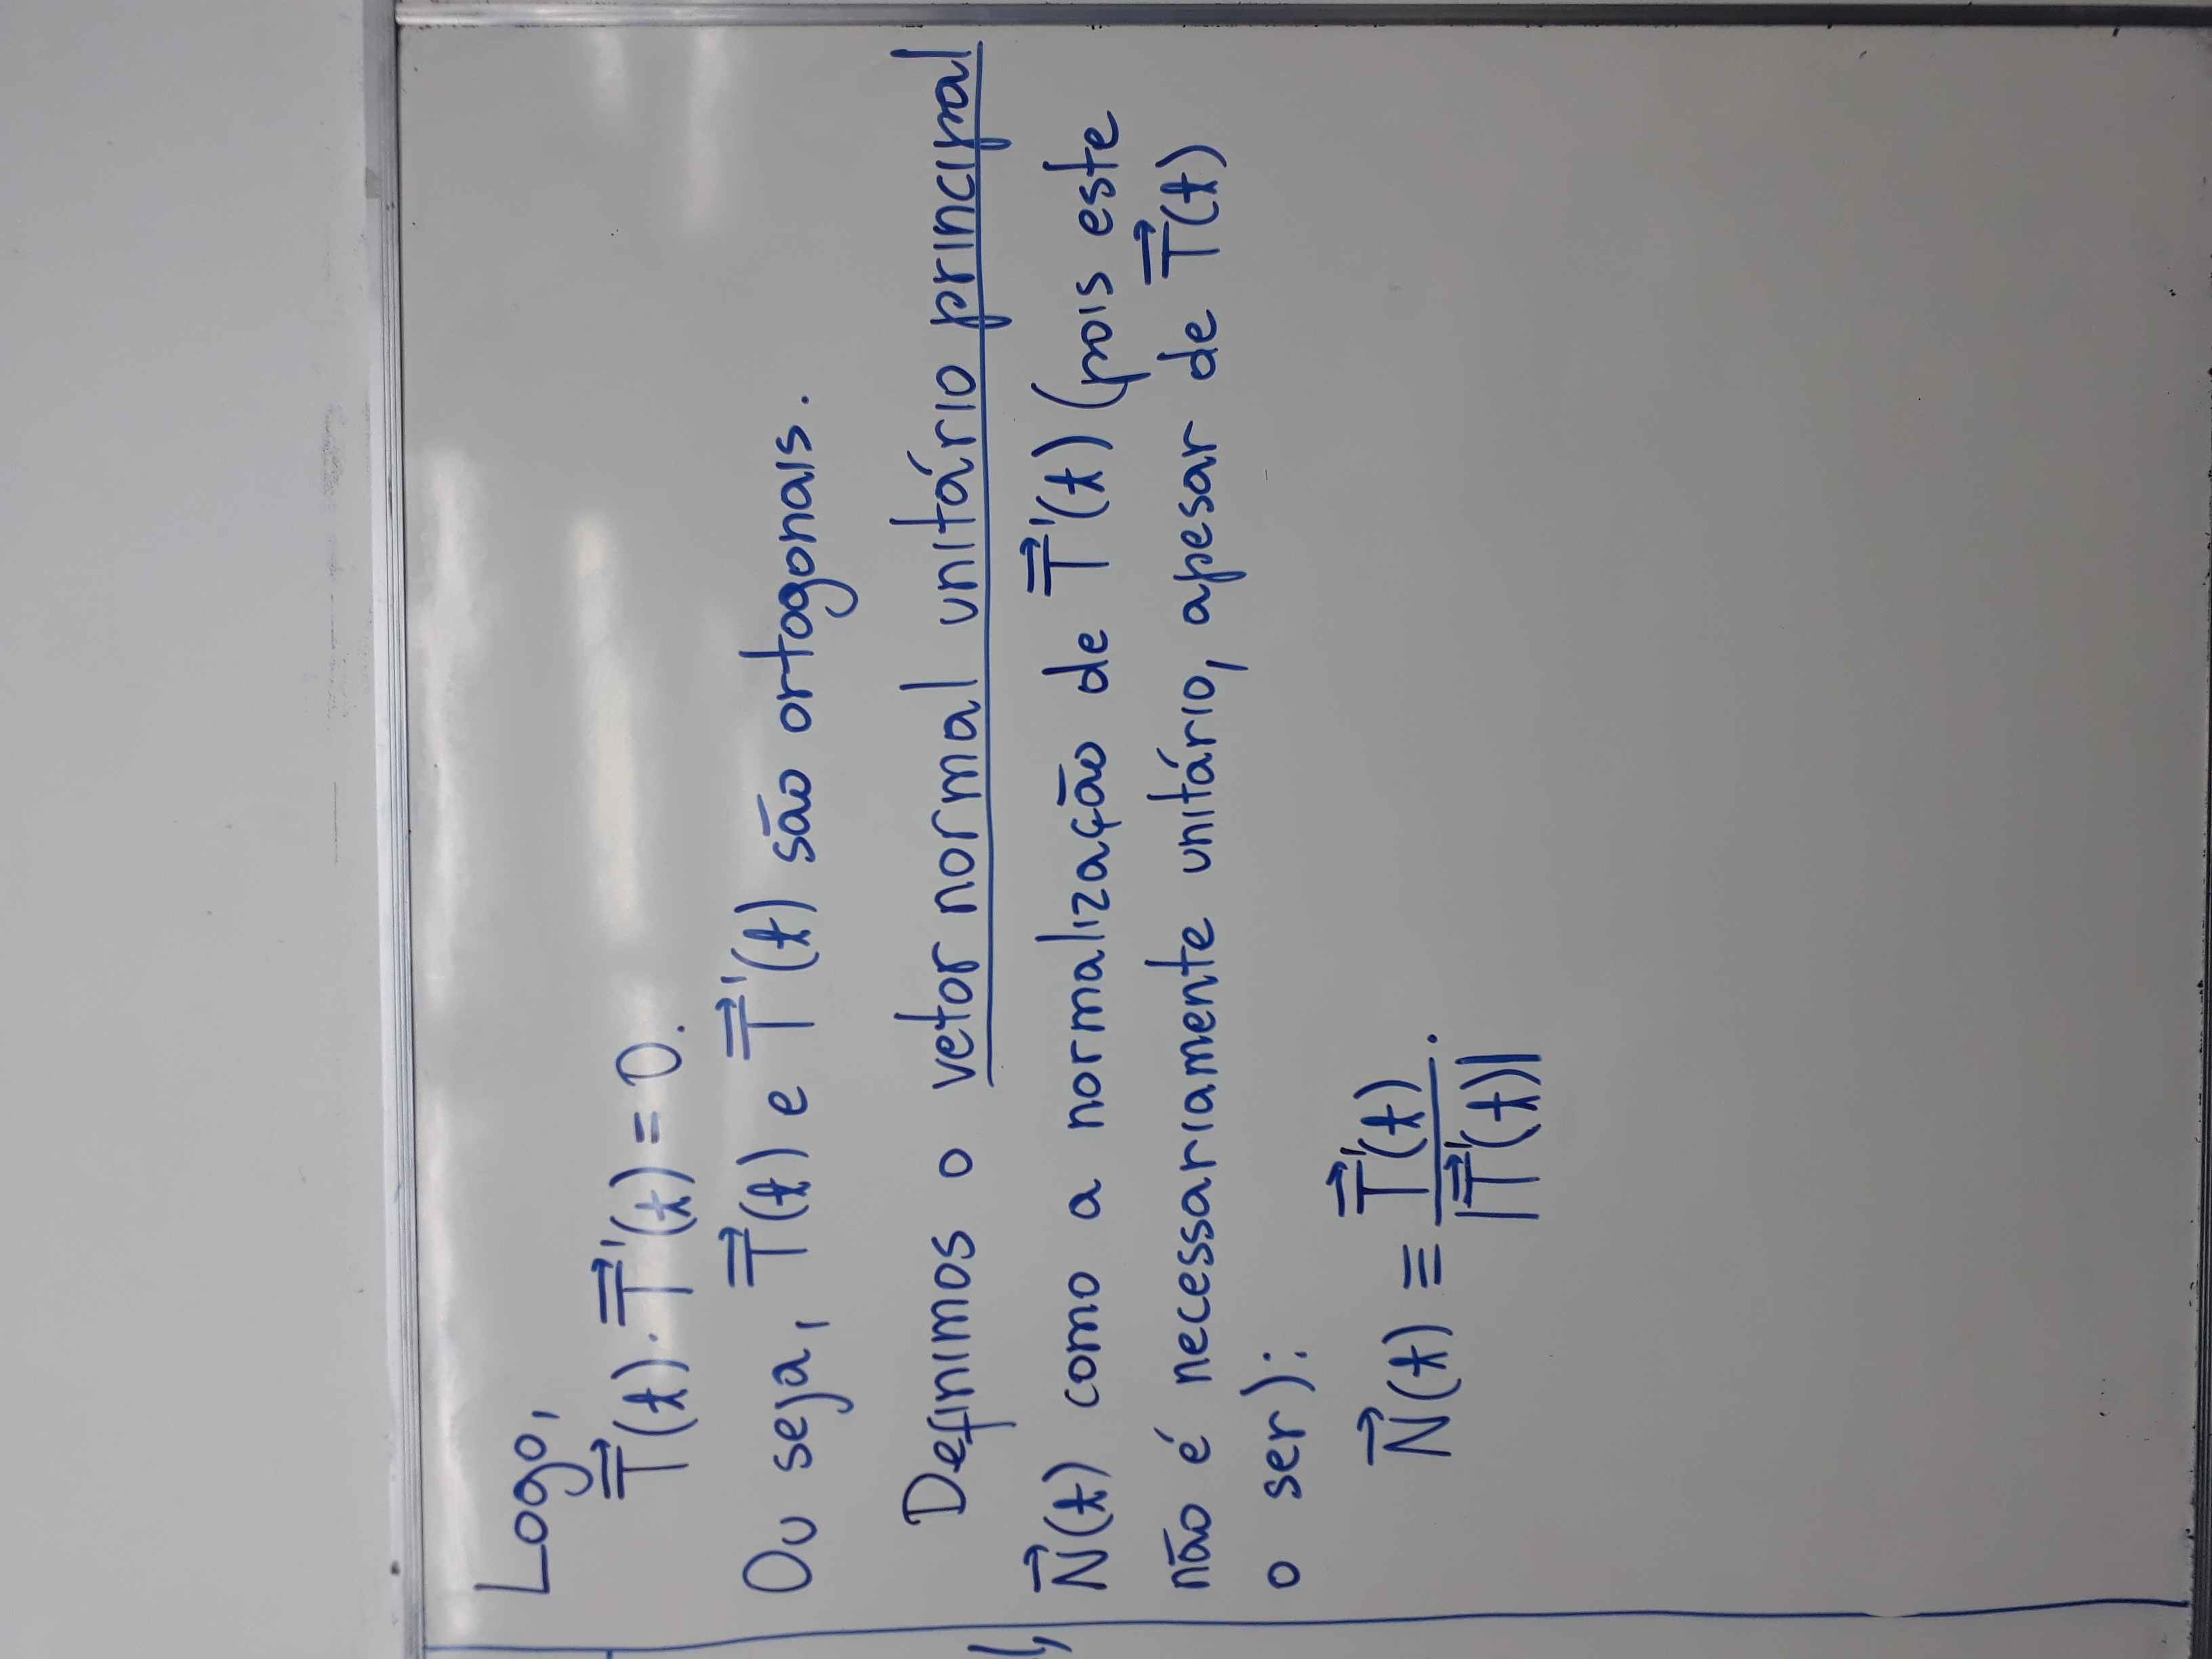 Logo,
T⃗(t)·T⃗'(t) = 0.
Ou seja, T⃗(t) e T⃗'(t) são ortogonais.
Definimos o vetor normal unitário principal
N⃗(t) como a normalização de T⃗'(t) (pois este
não é necessariamente unitário, apesar de T⃗(t)
o ser):
N⃗(t) ≡ T⃗'(t)
|T⃗'(t)|.